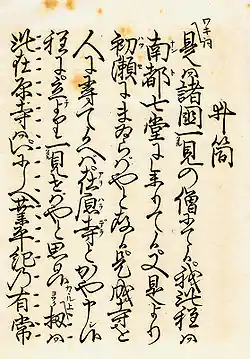 井筒
ワキ詞
是ハ諸國一見の僧にて候我此程は
南都七堂に参りて候又是より
初瀬にまゐらばやと存候是成寺を
人に尋て候へバ在原寺とかや申候
程に立寄り一見せばやと思ひ候扨ハ
此在原寺ハいにしへ業平紀乃有常